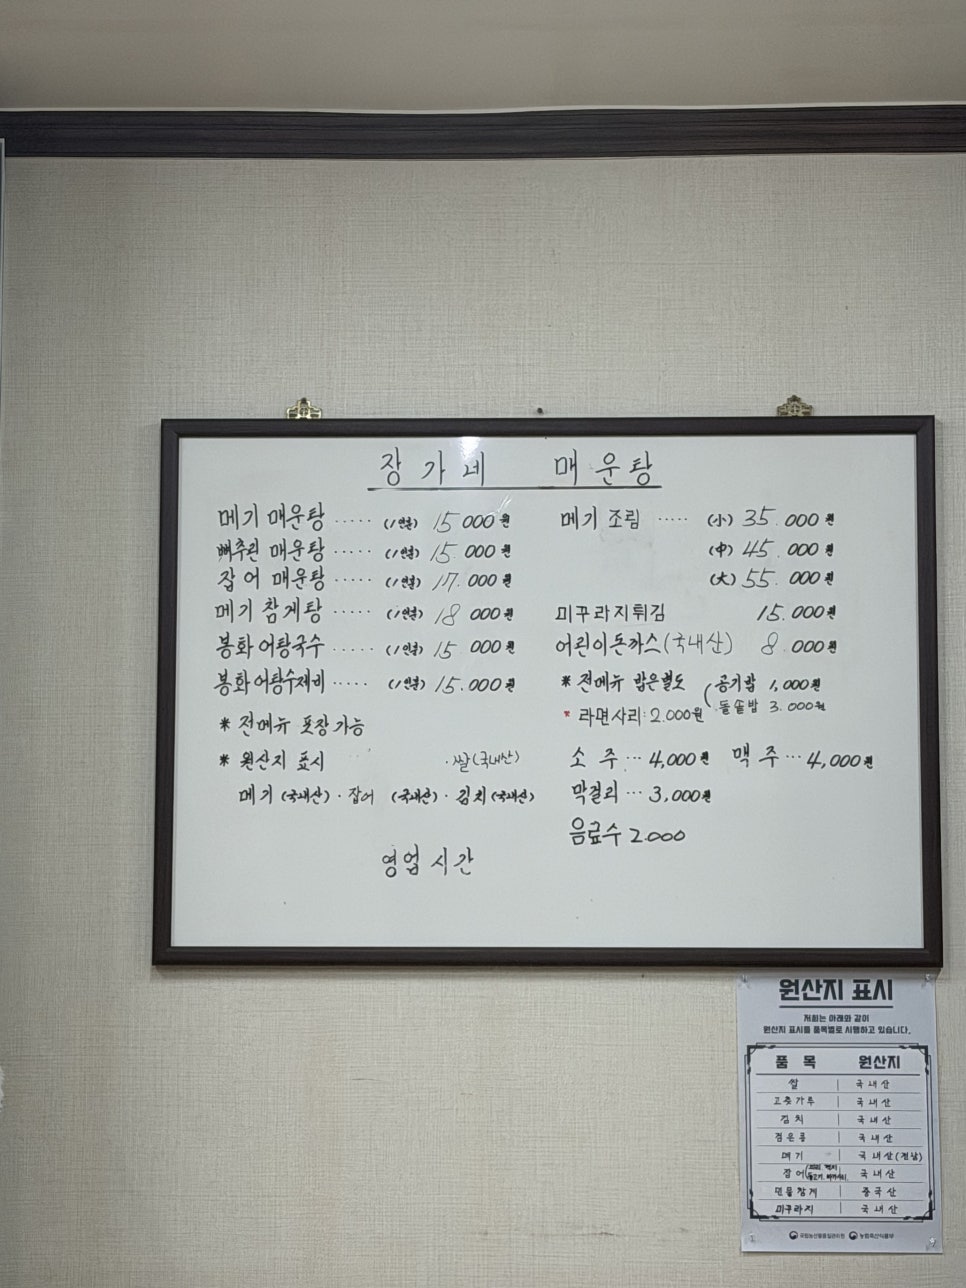 장가네 매운탕
메기 매운탕 ····· (1인분) 15000원
빠추린 매운탕 ····· (1인분) 15.000원
잡어 매운탕 ····· (1인분) 17.000원
메기 참게탕 ····· (1인분) 18000원
봉화 어탕국수 ····· (1인분) 15000원
봉화 어탕수제비 ····· (1인분) 15.000원
* 전메뉴 포장 가능
* 원산지 표시 ·쌀(국내산)
메기 (국내산)·잡어 (국내산)·김치 (국내산)
영업시간
메기 조림 ····· (小) 35.000원
(中) 45.000원
(大) 55.000원
미꾸라지튀김 15.000원
어린이돈까스(국내산) 8.000원
* 전메뉴 밥은별도 (공기밥 1,000원
돌솥밥 3.000원
* 라면사리: 2.000원
소주 ··· 4,000원 맥주 ··· 4,000원
막걸리 ··· 3,000원
음료수 2.000
원산지 표시
저희는 아래와 같이
원산지 표시를 품목별로 시행하고 있습니다.
품목 원산지
쌀 국내산
고춧가루 국내산
김치 국내산
검은콩 국내산
메기 국내산(전남)
잡어 국내산
민물참게 중국산
미꾸라지 국내산
국립농산물품질관리원 농림축산식품부